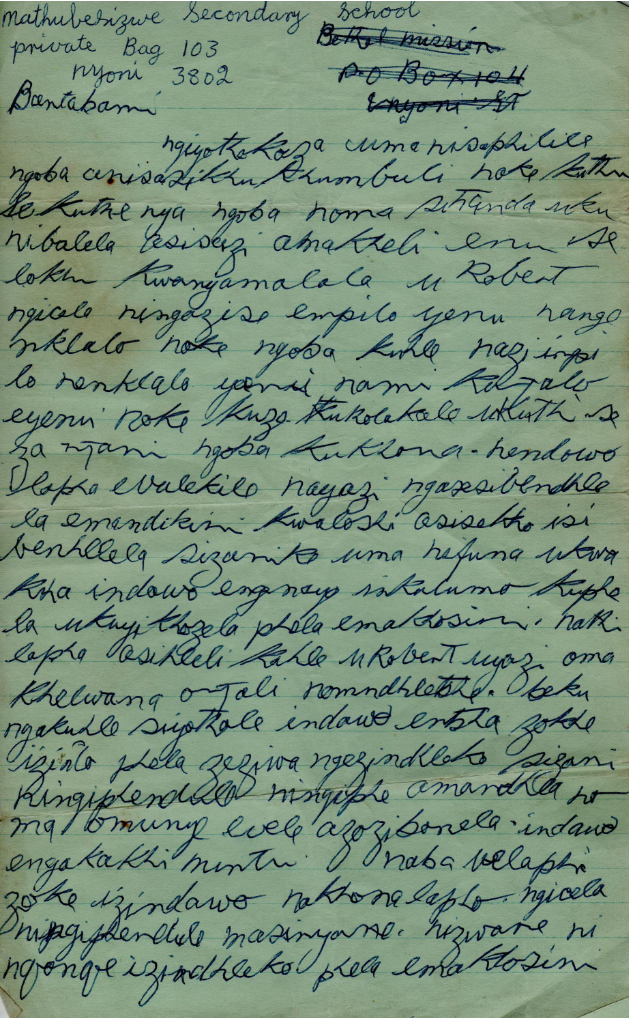 Mathubesizwe Secondary School
private Bag 103 Bethel mission
nyoni 3802 P.O Box 104
Bantabami
ngiyothokoza uma nisaphilile
ngoba anisasikhuthumbuli noke kuthu
se kuthe nya ngoba noma sithanda uku
nibalela asisazi amakheli enu se
lokhu kwanyamalala u Robert
ngicela ningazise empilo yenu nange
nklalo noke ngoba kuhle nazi impi
lo nenklalo yenu nami kanjalo
eyenu noke kuze kukolakale ukuthi se
za njani ngoba kukhona nendawo
lapha evalekile nayazi ngasesibendhle
la emandikini kwaloshi asisekho isi
benhllela sizamile uma nafuna ukwa
kha indawo engnayo inkulumo kuphe
la ukuyikhozela phela emakhosini. naki
lapha asihleli kahle uRobert uyazi oma
khelwana o njali nomndhletshe. beku
ngakuhle siyothole indawo entsha zokhe
izinto phela zeziwa ngezindhleko sizani
ningiphendule ningiphe amandhla no
ma omunye evele azozibonela indawo
engakakhi muntu naba velaphi
zoke izindawo nakhona lapho. ngicela
ningiphendule masinyane. nizwane ni
nqonqe izindhleko phela emakhosini